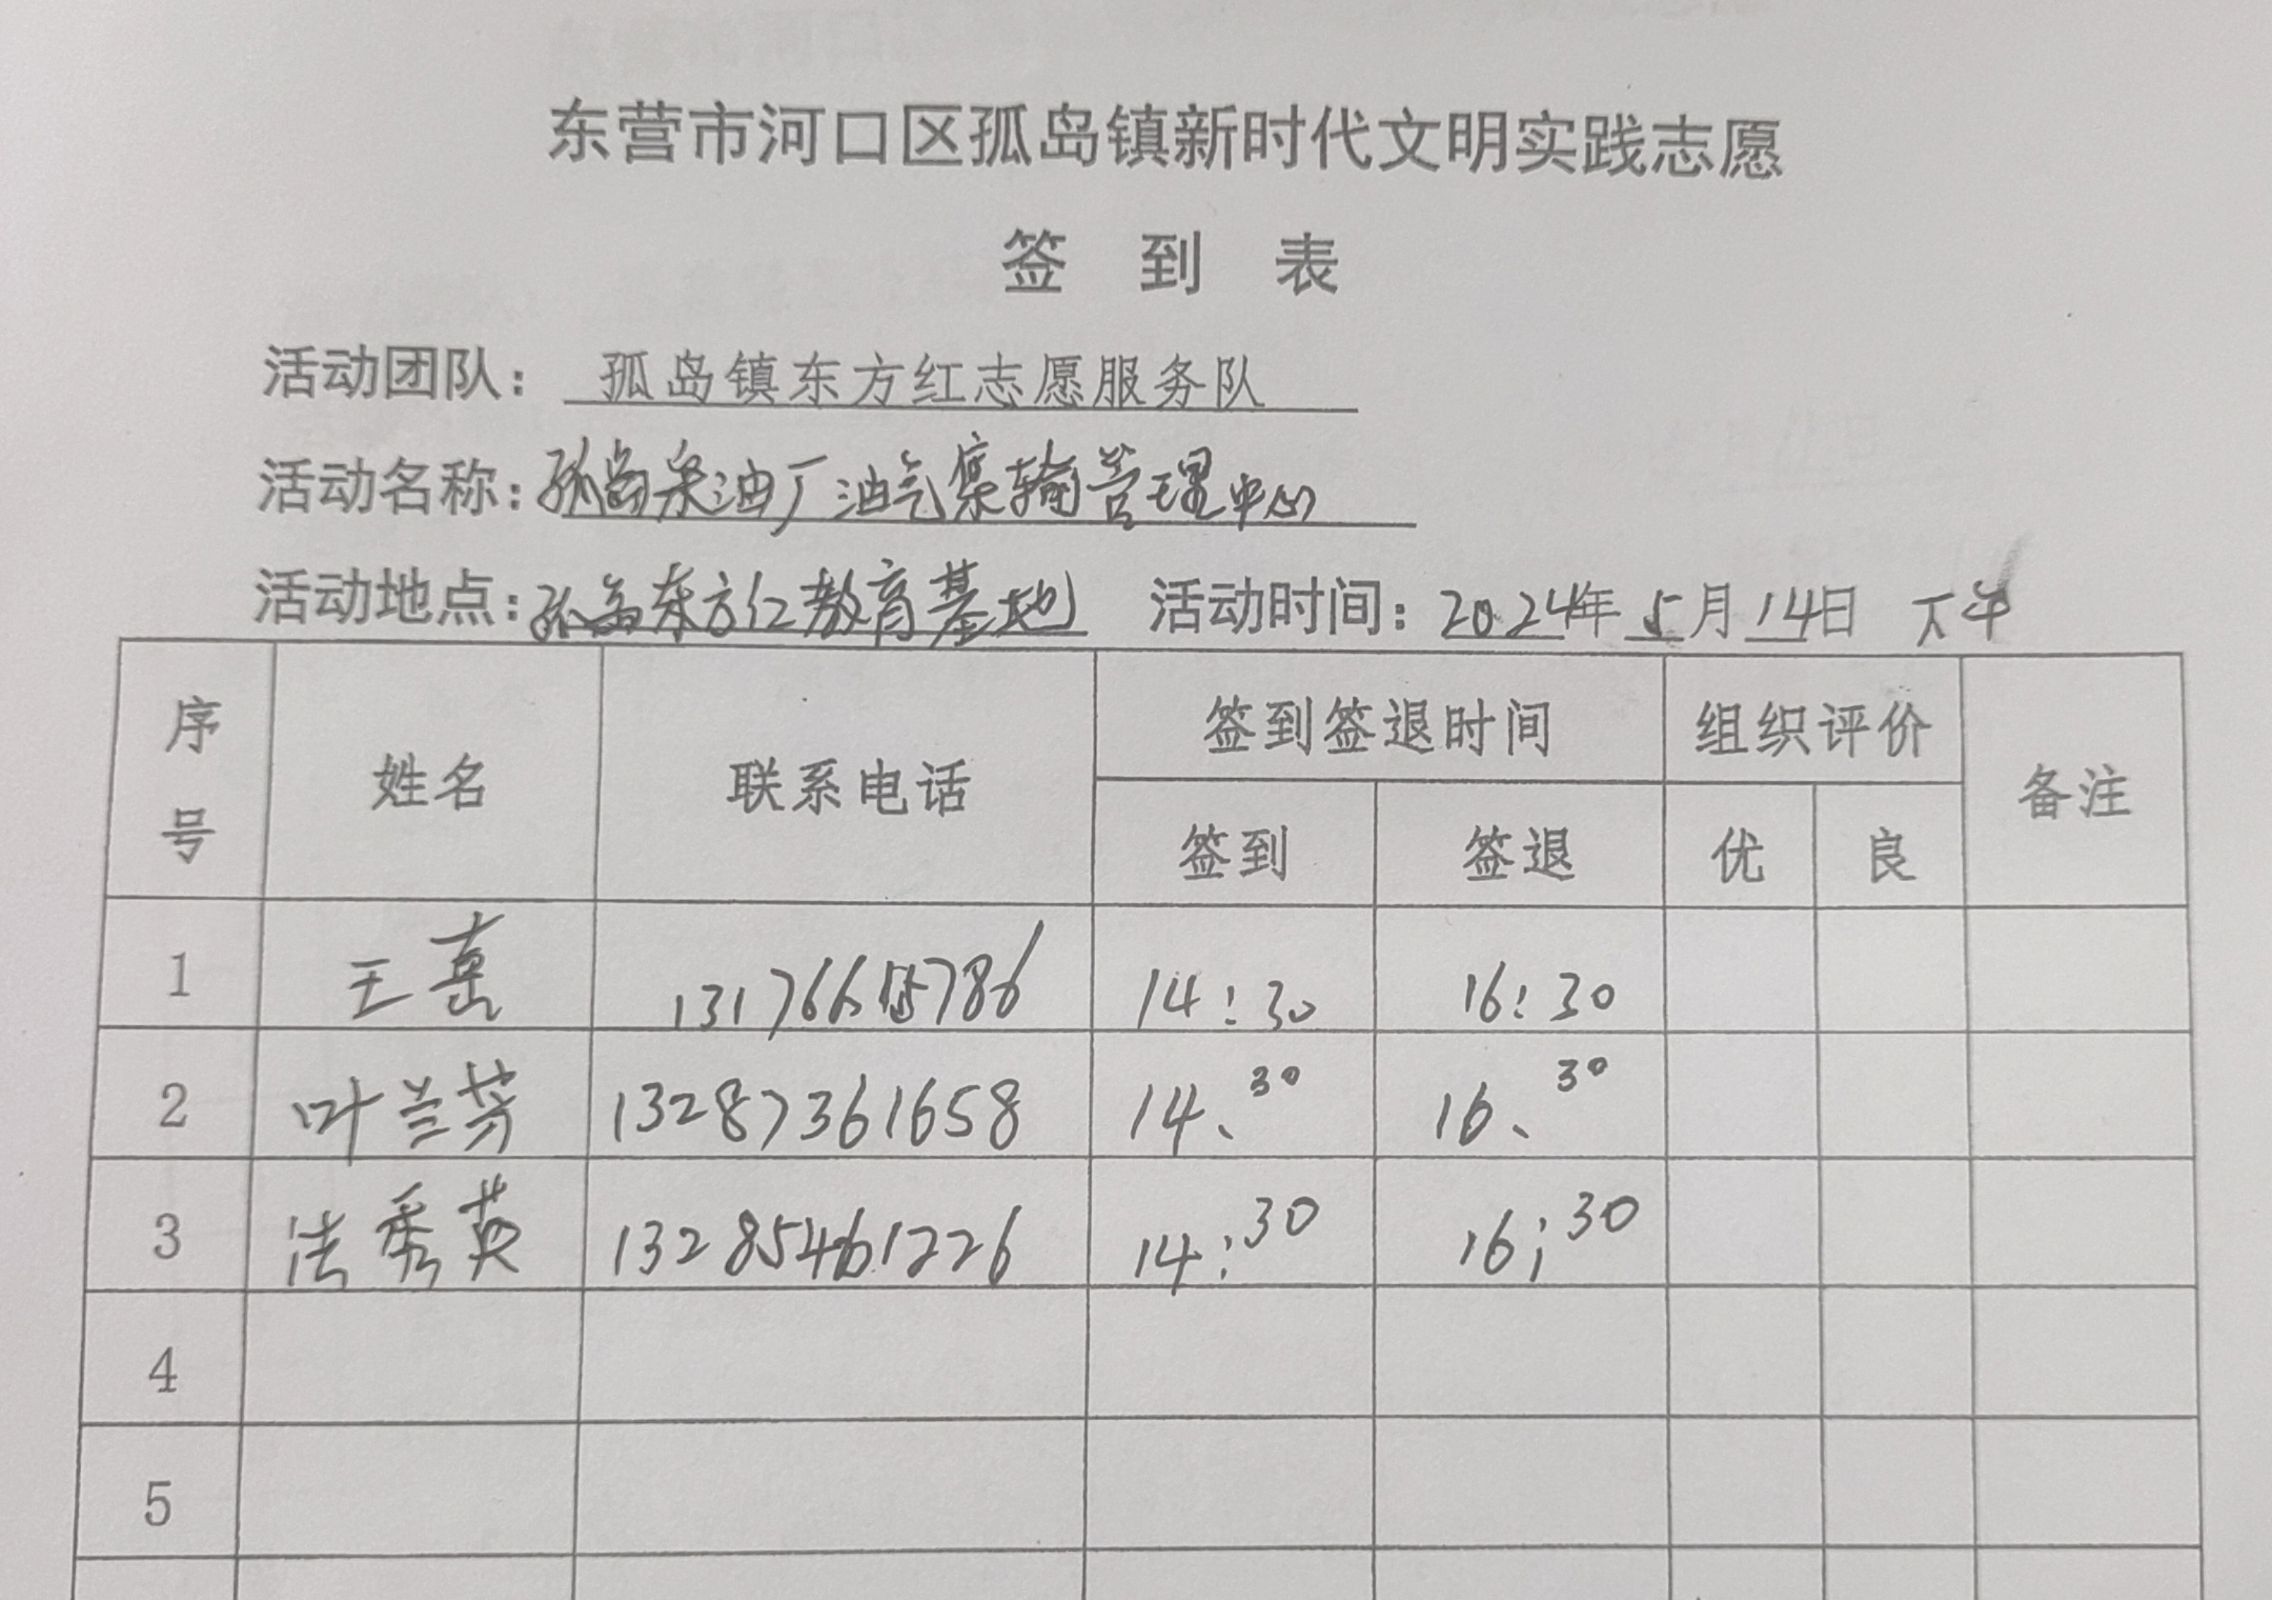 东营市河口区孤岛镇新时代文明实践志愿
签 到 表
活动团队： 孤岛镇东方红志愿服务队
活动名称：孤岛采油厂油气集输管理中心
活动地点：孤岛东方红教育基地 活动时间：2024年 5月 14日 下午
序号 姓名 联系电话 签到签退时间 组织评价 备注
签到 签退 优 良
1 王 14:30 16:30
2 叶兰芬 13287361658 14、30 16、30
3 法秀英 13285461226 14:30 16;30
4
5